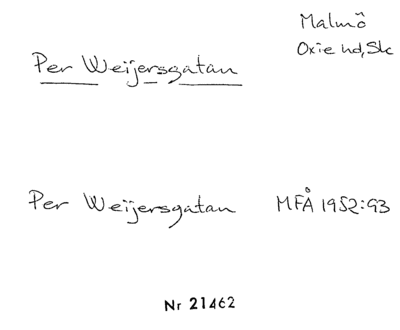 Malmö
Oxie hd, Sk
Per Weijersgatan
Per Weijersgatan MFÅ 1952:93
Nr 21462